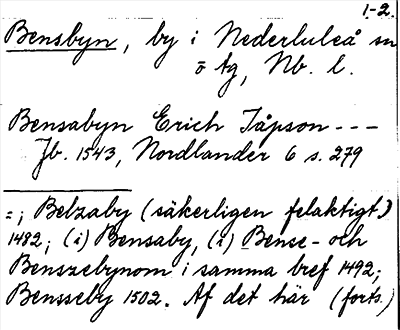 1-2.
Bensbyn, by i Nederluleå sn
ö tg, Nb. l.
Bensabyn Erich Jåpson ---
Jb. 1543, Nordlander 6 s. 279
=; Belzaby (säkerligen felaktigt)
1482; (i) Bensaby, (i) Bense- och
Benszebynom i samma bref 1492;
Bensseby 1502. Af det här (forts.)